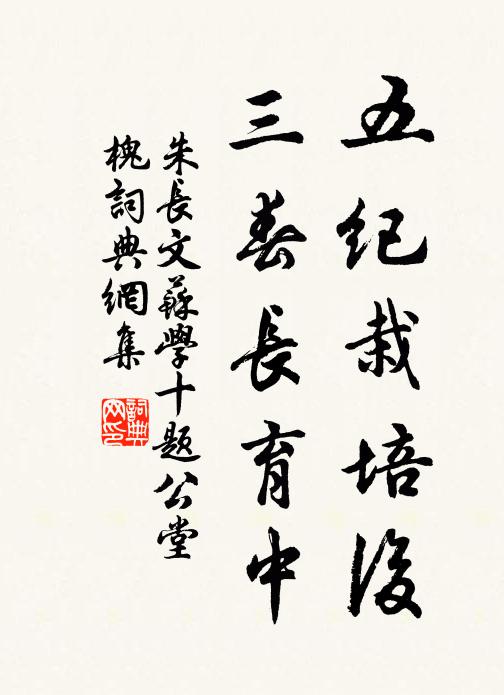 五纪栽培後
三春長育中
朱長文蘇學十題公堂
槐詞典網集
詞典
网印